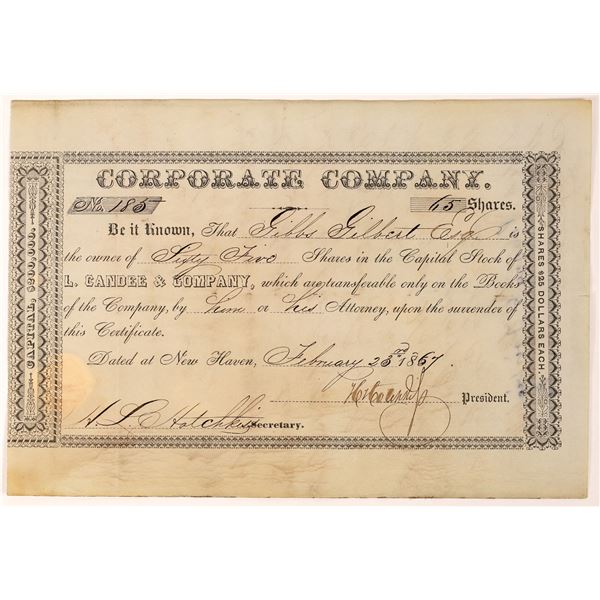 CORPORATE COMPANY.
No. 185 65 Shares.
Be it Known, That Gibbs Gilbert Esq is
the owner of Sixty Five Shares in the Capital Stock of
L. CANDEE & COMPANY, which are transferable only on the Books
of the Company, by him or His Attorney, upon the surrender of
this Certificate.
Dated at New Haven, February 25 1867.
President.
H. L. Hotchkiss Secretary.
SHARES $25 DOLLARS EACH.